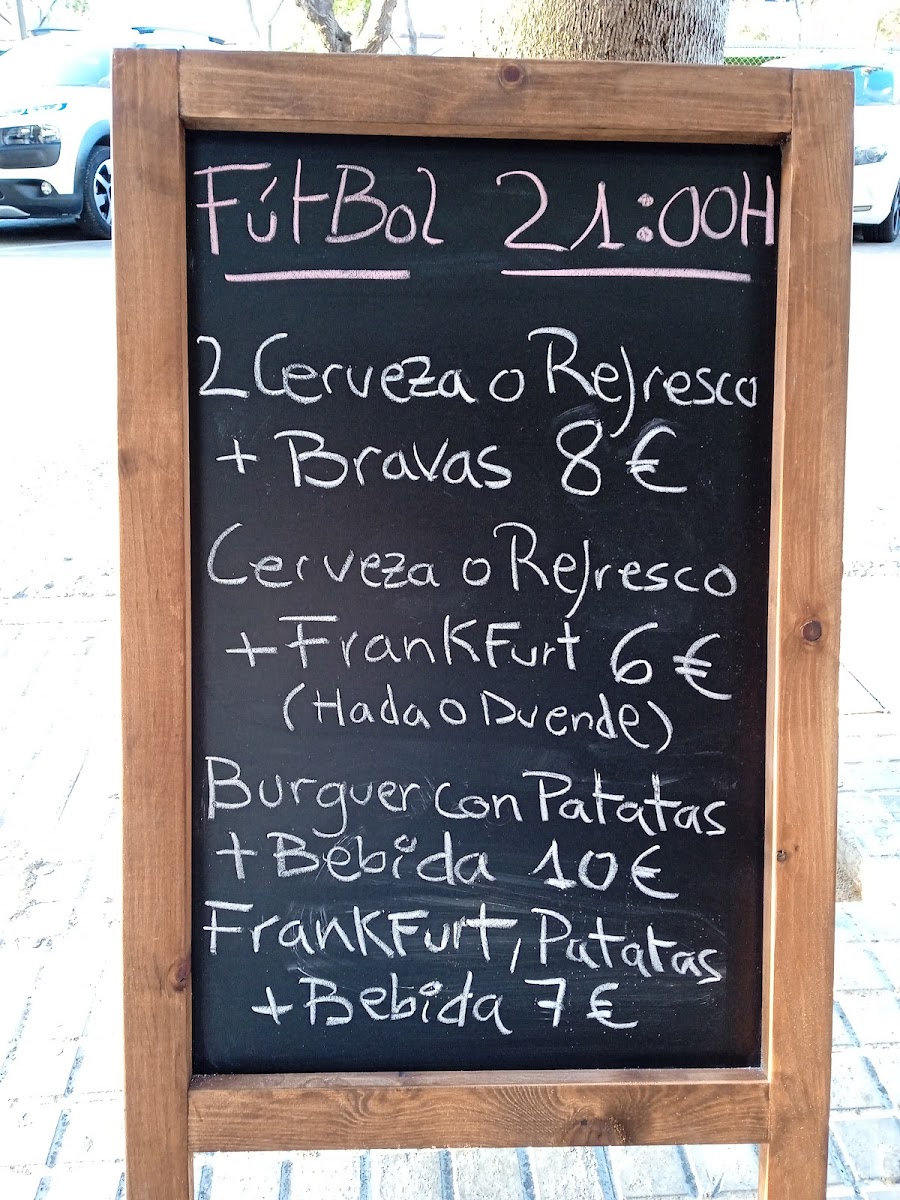 FútBol 21:00H
2 Cerveza o Refresco
+ Bravas 8 €
Cerveza o Refresco
+ FrankFurt 6 €
(Hada o Duende)
Burguer con Patatas
+ Bebida 10 €
FrankFurt, Patatas
+ Bebida 7 €